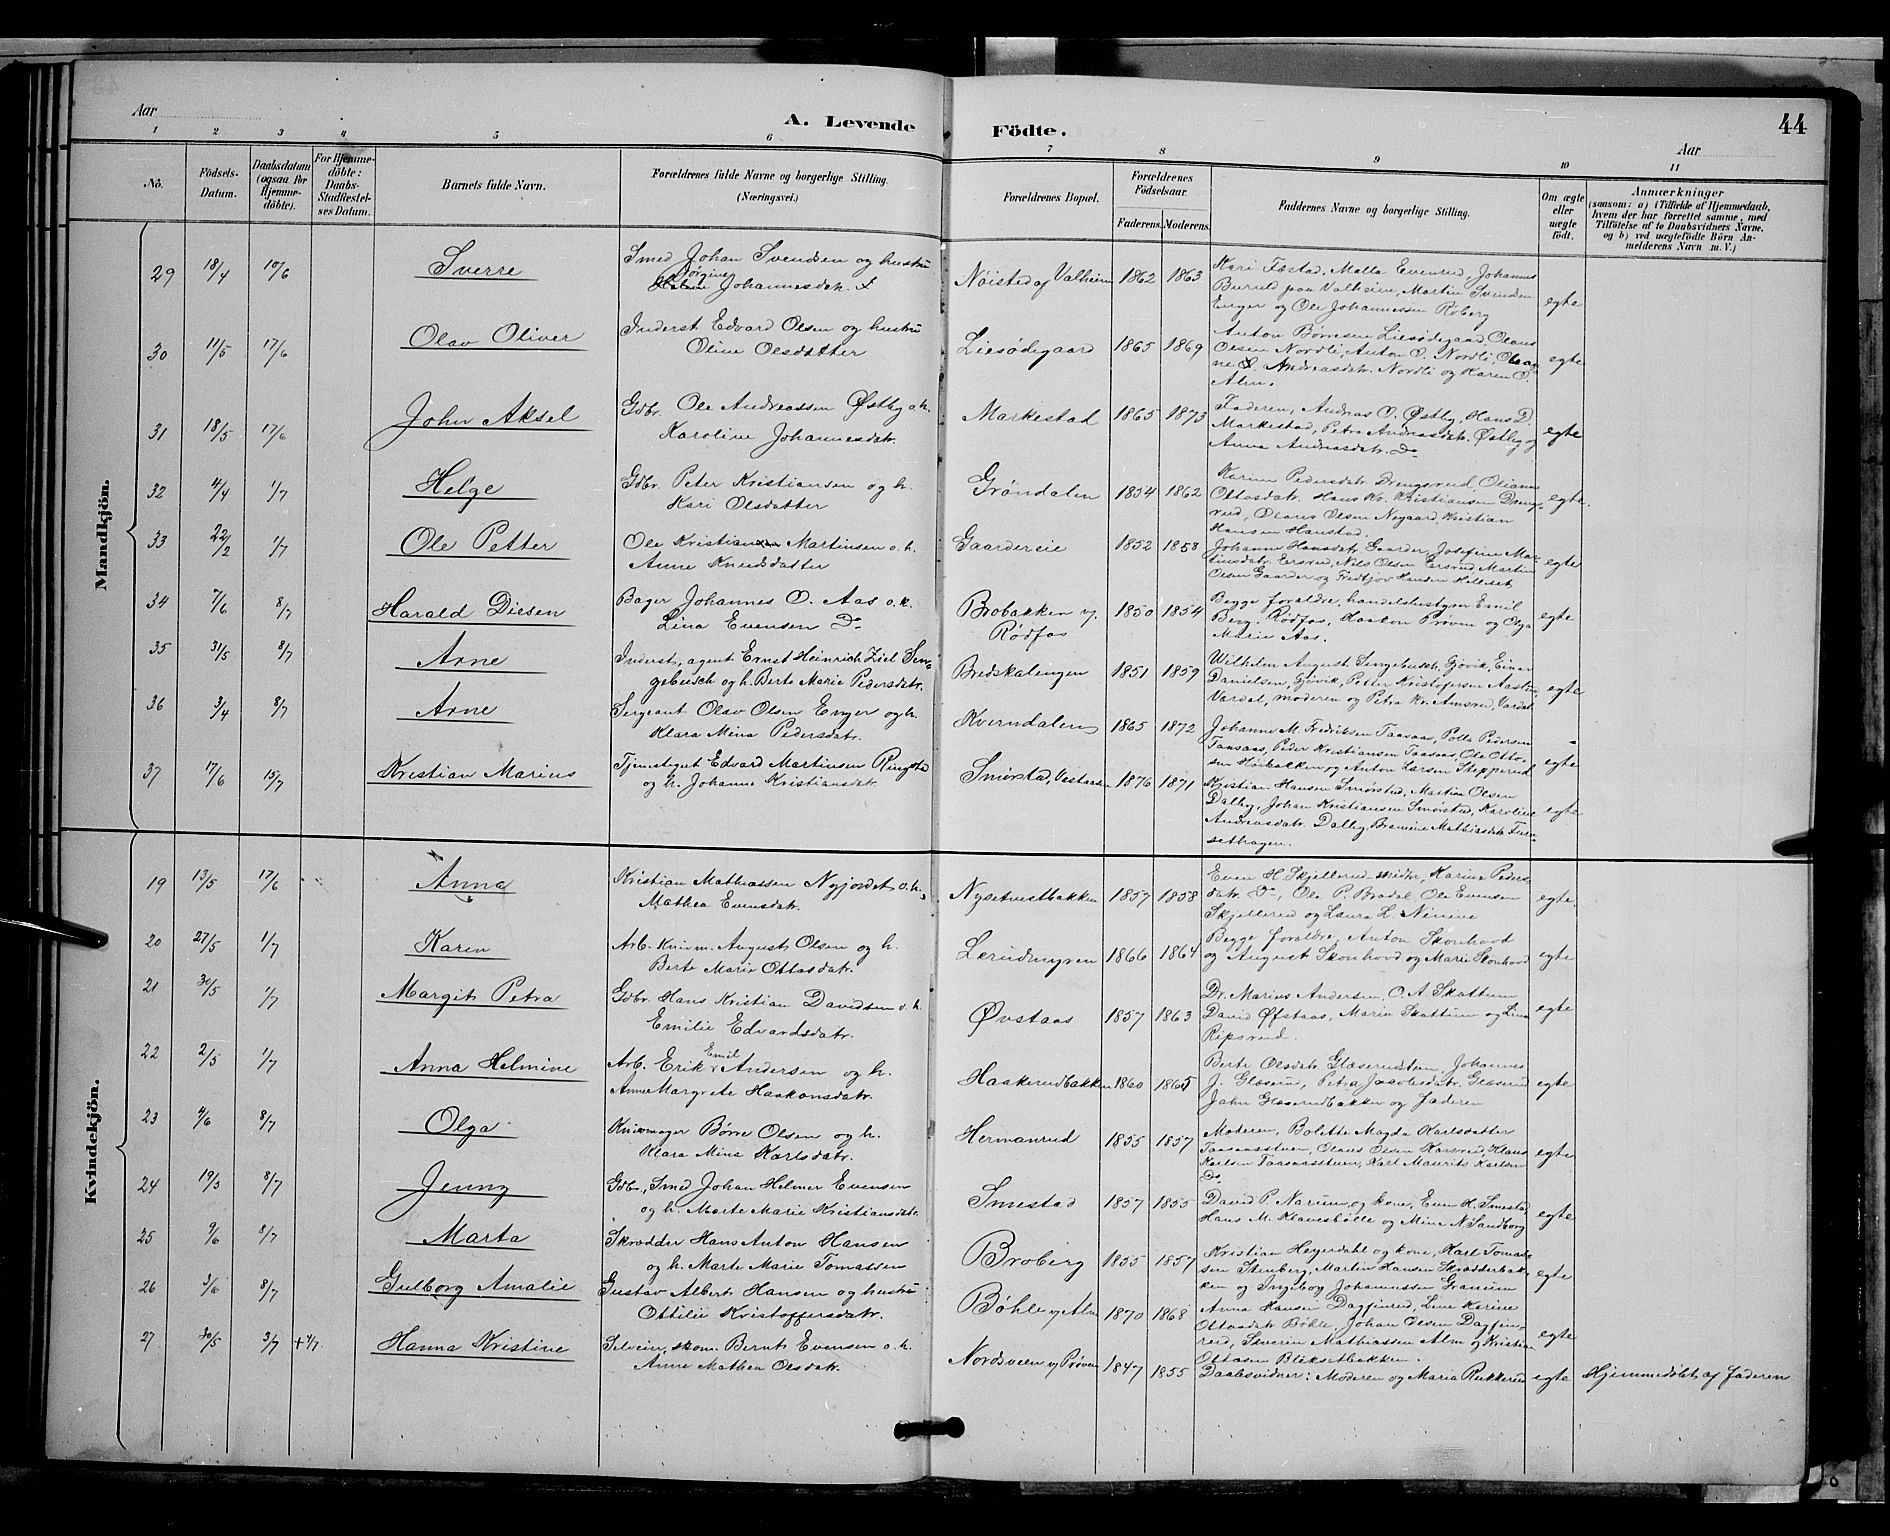 Aar
A. Levende
Födte.
44
Aar
1 2 3 4 5 6 7 8 9 10 11
No.
Födsels-
Datum.
Daabsdatum
(ogsaa for
Hjemme-
döbte).
For Hjemme-
döbte:
Daabs-
Stadfæstel-
ses Datum.
Barnets fulde Navn.
Forældrenes fulde Navne og borgerlige Stilling.
(Næringsvei.)
Forældrenes Bopæl.
Forældrenes
Födselsaar.
Faderens. Moderens.
Faddernes Navne og borgerlige Stilling.
Om ægte
eller
uægte
födt.
Anmærkninger
(saasom: a) i Tilfælde af Hjemmedaab,
hvem der har forrettet samme, med
Tilföielse af to Daabsvidners Navne,
og b) ved uægtefödte Börn An-
melderens Navn m. V.)
Mandkjön.
29 18/4 10/6 Sverre
Smed Johan Svendsen og hustru
Jørgine
Johannesdatr.
Nöisted af Valheim 1862 1863
Kari Fæstad, Malla Evenrud, Johannes
Burud paa Valheim, Martin Svendsen
Enger og Ole Johannessen Roberg
egte
30 11/5 17/6 Olav Oliver
Inderst Edvard Olsen og hustru
Oline Olsdatter
Liesødegaard 1865 1869
Anton Børresen Liesødegaard, Olaus
Olsen Nordli, Anton O. Nordli, Olea
ne Andreasdatr. Nordli og Karen O.
Alm.
egte
31 18/5 17/6 John Aksel
Gdbr. Ole Andreassen Østby o.h.
Karoline Johannesdatr.
Markestad 1865 1873
Faderen, Andreas O. Østby, Hans D.
Markestad, Petra Andreasdatr. Østby og
Anna Andreasdatr. Do
egte
32 4/4 1/7 Helge
Gdbr. Peter Kristiansen og h.
Kari Olsdatter
Grøndalen 1854 1862
Karine Pedersdatr. Drengsrud, Olianne
Ottosdatr. Hans Kr. Kristiansen Dreng-
rud, Olaves Olsen Nygaard, Kristian
Hansen Hanstad.
egte.
33 22/2 1/7 Ole Petter
Ole Kristian Martinsen o.h.
Anne Knudsdatter
Gaardereie 1852 1858
Johanne Hansdatr. Gaarder, Josefine Mar-
tinsdatr. Ersrud, Nils Olsen Ersrud Martin
Olsen Gaarder og Fridtjov Hansen Helleset
egte
34 7/6 8/7 Harald Diesen
Bager Johannes O. Aas o.h.
Lina Evensen Do
Brobakken v.
Rødfos
1850 1854
Begge foraldre, handelsbestyrer Emil
Berg, Rødfos, Haakon Prøven og Olga
Marie Aas.
egte
35 31/5 8/7 Arne
Inderst, agent Ernst Heinrich Ziel Sen-
gebusch og h. Berte Marie Pedersdatr.
Bredskalengen 1851 1859
Wilhelm August Sengebusch, Gjøvik, Einar
Danielsen, Gjøvik, Petter Kristofersen Aasten
Vardal, moderen og Petra Kr. Amsrud, Vardal
egte
36 3/4 8/7 Arne
Sergeant Olav Olsen Enger og h.
Klara Mina Pedersdatr.
Kverndalen 1865 1872
Johanne M. Fredriksen Taasaas, Polla Pedersen
Taasaas, Peder Kristiansen Taasaas, Ole Otto-
sen Høibakken og Anton Larsen Skipperud
egte
37 17/6 15/7 Kristian Marius
Tjenestegut Edvard Martinsen Ringstad
og h. Johanne Kristiansdatr.
Smørstad, Vestaasen 1876 1871
Kristian Hansen Smørstad, Martin Olsen
Dalby, Johan Kristiansen Smørstad, Karoline
Andreasdatr. Dalby, Bramine Mathiasdatr.
sethagen.
egte
Kvindekjön.
19 13/5 17/6 Anna
Kristian Mathiassen Nyjordet o.h.
Mathea Evensdatr.
Nysetvestbakken 1857 1858
Even H. Skjellerud, Karine Peders
datr. Do, Ole P. Bradal, Ole Evensen
Skjellerud og Laura L. Ninive
egte.
20 27/5 1/7 Karen
Arb. Knivm. August Olsen og h.
Berte Marie Ottosdatr.
Lerudmyren 1866 1864
Begge foraldre, Anton Skonhovd
og August Skonhovd og Marie Skonhovd
egte
21 30/5 1/7 Margit Petra
Gdbr. Hans Kristian Davidsen o.h.
Emilie Edvardsdatr.
Øvstaas 1857 1863
Dr. Marius Andersen, O. A. Skattum
David Øfstaas, Marie Skattum og Lina
Ripsrud.
egte
22 2/5 1/7 Anna Helmine
Emil
Arb. Erik Andersen og h.
Anne Margrete Haakonsdatr.
Haakerudbakken 1860 1865
Berte Olsdatr. Glæserudstuen, Johannes
J. Glæserud, Petra Jacobsdatr. Glæserud
John Glæserudbakken og Faderen
egte
23 4/6 8/7 Olga
Knivmager Børre Olsen og h.
Klara Mina Karlsdatr.
Hermanrud 1855 1857
Moderen, Bolette Magda Karlsdatter
Taasaasstuen, Olaus Olsen Karsrud, Klaus
Karlsen Taasaasstuen, Karl Maurits Karlsen
Do
egte
24 19/3 8/7 Jenny
Gdbr., Smed Johan Helmer Evensen
og h. Marte Marie Kristiansdatr.
Smestad 1857 1855
David P. Narum og kone, Even H. Smestad
Hans M. Klavesbølle og Mina N. Sandborg
egte
25 9/6 8/7 Marta
Skrædder Hans Anton Hansen
og h. Marte Marie Tomassen
Broberg 1855 1857
Kristian Heyerdahl og kone, Karl Tomas-
sen Stenberg, Martin Hansen Skrædderbak-
ken og Ingeborg Johannessen Granum
egte
26 3/6 8/7 Gulborg Amalie
Gustav Albert Hansen og hustru
Ottilie Kristoffersdatr.
Bøhle v/ Alm 1870 1868
Anna Hansen Dagfinrud, Lene Karine
Ottosdatr. Bøhle, Johan Olsen Dagfin-
rud, Severin Mathiassen Alm og Kristian
Ottosen Bleksetbakken.
egte
27 30/5 3/7 +4/7 Hanna Kristine
Selveier, skom. Bernt Evensen o.h.
Anne Mathea Olsdatr.
Nordsveen v/ Prøven 1847 1855
Daabsvidner: Moderen og Maria Rukkerud
egte
Hjemmedøbt af Faderen